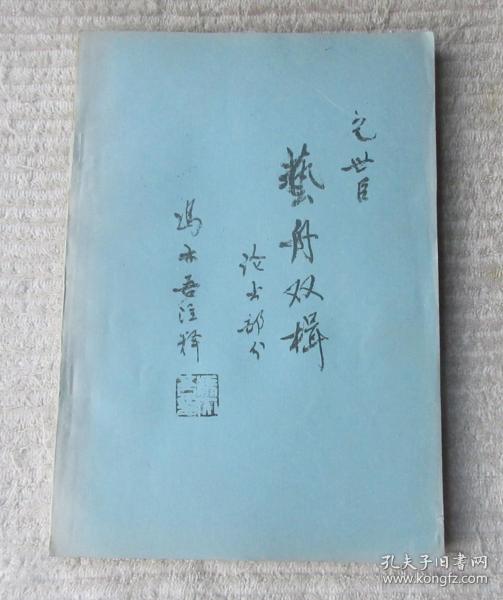 包世臣
藝舟双楫
论书部分
冯亦吾注释
孔夫子旧书网
www.kongfz.com